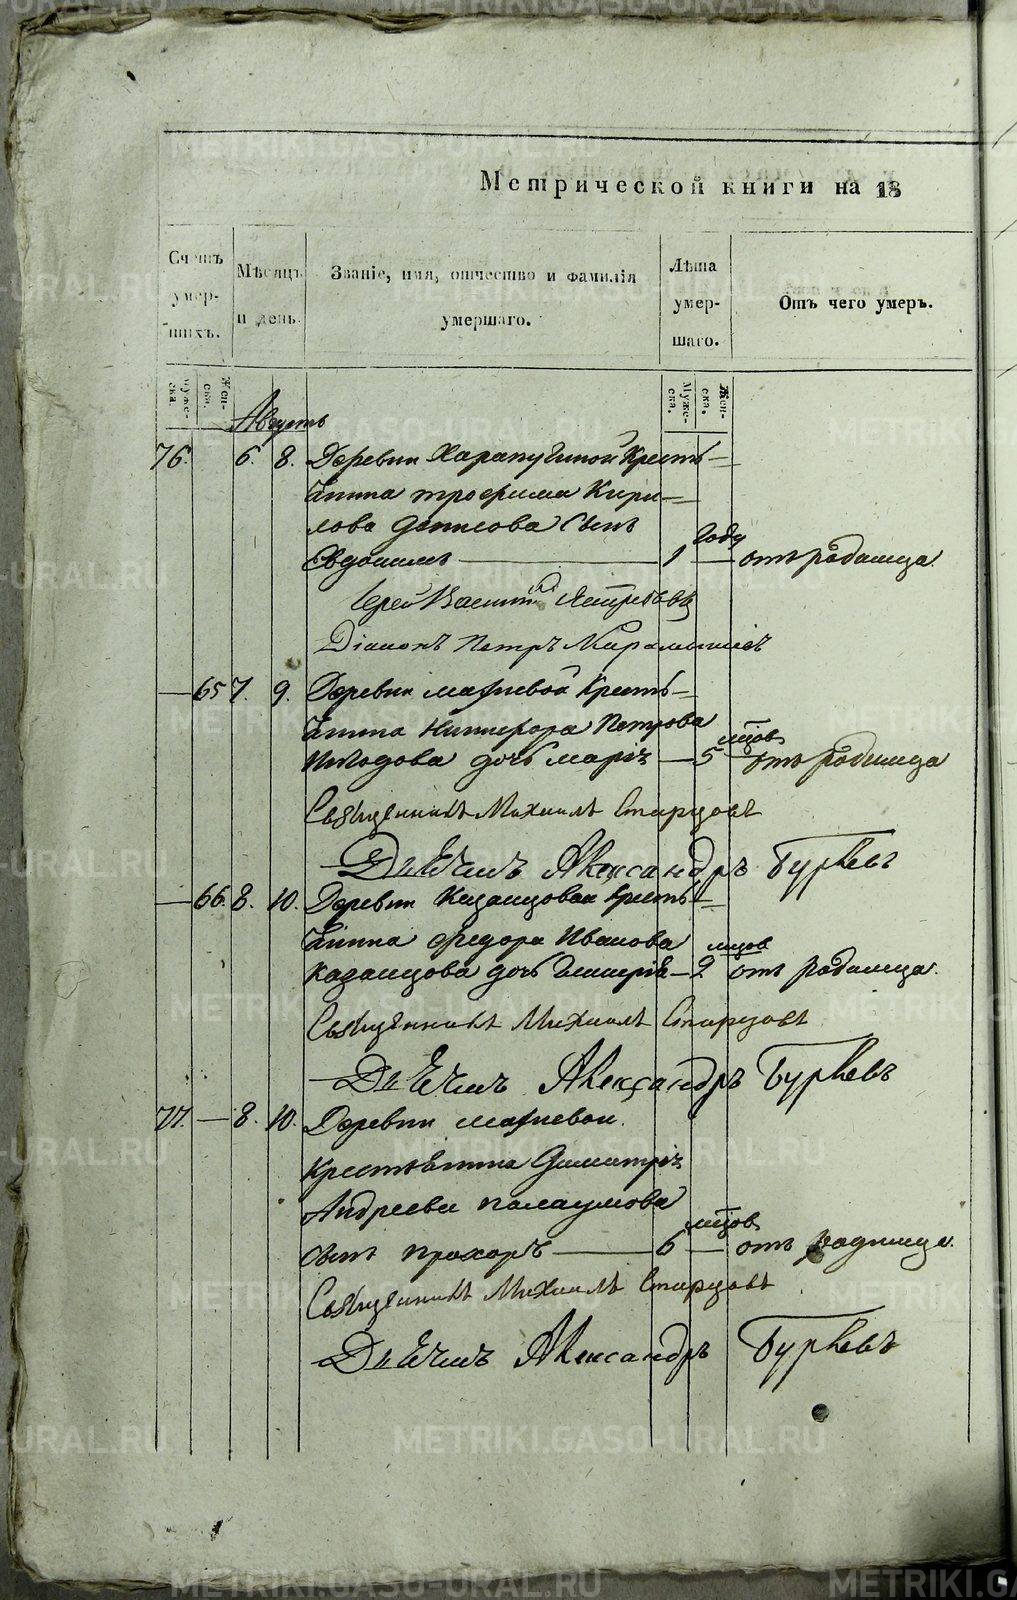 Метрической книги на 18
Счетъ умершихъ.
Мѣсяцъ и день.
Званіе, имя, отчество и фамилія умершаго.
Лѣта умершаго.
Отъ чего умеръ.
Мужеска. Женска.
Мужеска. Женска.
Августъ
76. 6. 8. Деревни Харапугиной Кресть=
янина трофима Кири=
лова денисова Сынъ году
Евдокимъ 1 — отъ родимца.
Іерей Василій Ястребовъ
Діаконъ Петръ
— 65 7. 9. Деревни мазневой Кресть=
янина Никифора Петрова мцов
дочь марія — 5 отъ родимца
Священникъ Михаилъ Старцовъ
Дьячекъ Александръ
— 66. 8. 10. Деревни Казанцовой Кресть=
янина Федора Иванова мцов
Казанцова дочь — 2 отъ родимца.
Священникъ Михаилъ Старцовъ
Дьячекъ Александръ
77. — 8. 10. Деревни мазневой.
Крестьянина Димитрія
Андреева мцов
сынъ прохоръ — 6 — отъ родимца.
Священникъ Михаилъ Старцовъ
Дьячекъ Александръ
METRIKI.GASO-URAL.RU